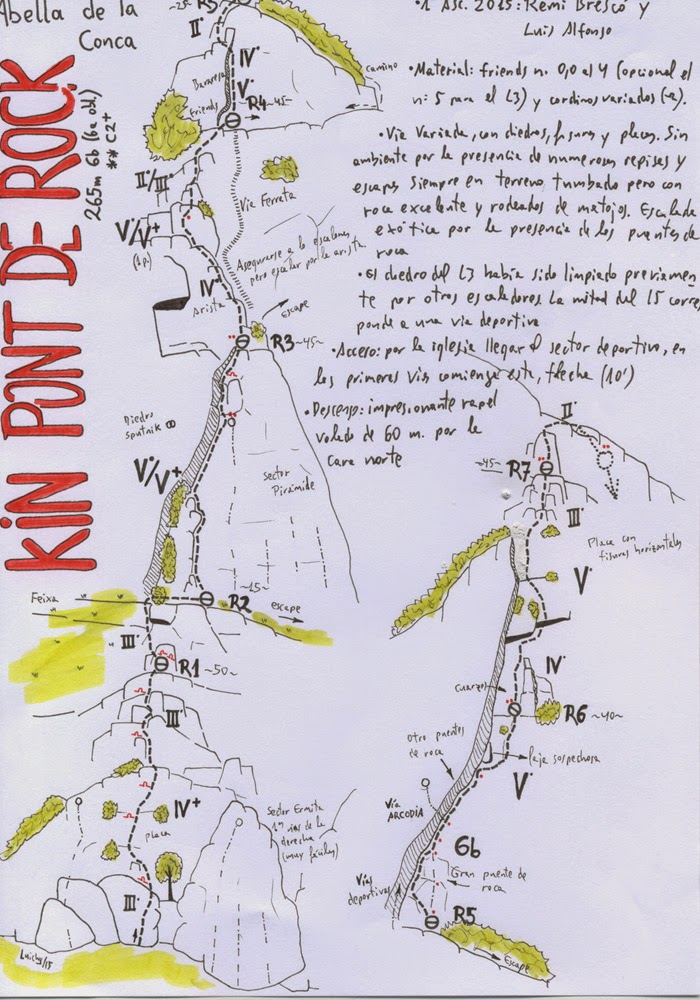 Abella de la
Conca
KIN PONT DE ROCK
265m 6b (6a obl.)
** C2+
•1ª Asc. 2015: Remi Brescó y
Luis Alfonso
•Material: friends nº 0,0 al 4 (opcional el
nº 5 para el L3) y cordinos variados
•Vía Variada, con diedros, fisuras y placas. Sin
ambiente por la presencia de numerosas repisas y
escapes siempre en terreno tumbado pero con
roca excelente y rodeados de matojos. Escalada
exótica por la presencia de los puentes de
roca
•El diedro del L3 había sido limpiado previamen
te por otros escaladores. La mitad del L5 corres
ponde a una vía deportiva
•Acceso: por la iglesia llegar al sector deportivo, en
las primeras vías comienza esta, flecha (10')
•Descenso: impresionante rapel
volado de 60 m. por la
cara norte
~25~ R5
II°
IV°
V°
Bavaresa
friends
R4 ~45~
camino
II°/III°
Vía Ferrata
V°/V+
Asegurarse a los escalones
pero escalar por la arista
IV°
Arista
Escape
R3 ~45~
Diedro
Sputnik
V°/V+
Sector
Pirámide
~15~
Feixa
R2
escape
III°
R1 ~50~
III°
IV+
placa
Sector Ermita
1as vías de la
derecha
(muy fáciles)
III°
Luichy/15
II°
~45~ R7
III°
Placa con
fisuras horizontales
V°
IV°
Cuarzo
R6 ~40~
Otro puentes
de roca
laja sospechosa
V°
Vía
ARCODIA
6b
Gran puente de
roca
Vías
deportivas
R5
Escape